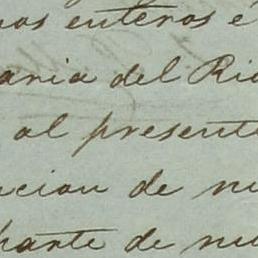 nos enteros é
aria del Rio
al presente
acion de nu
parte de nu